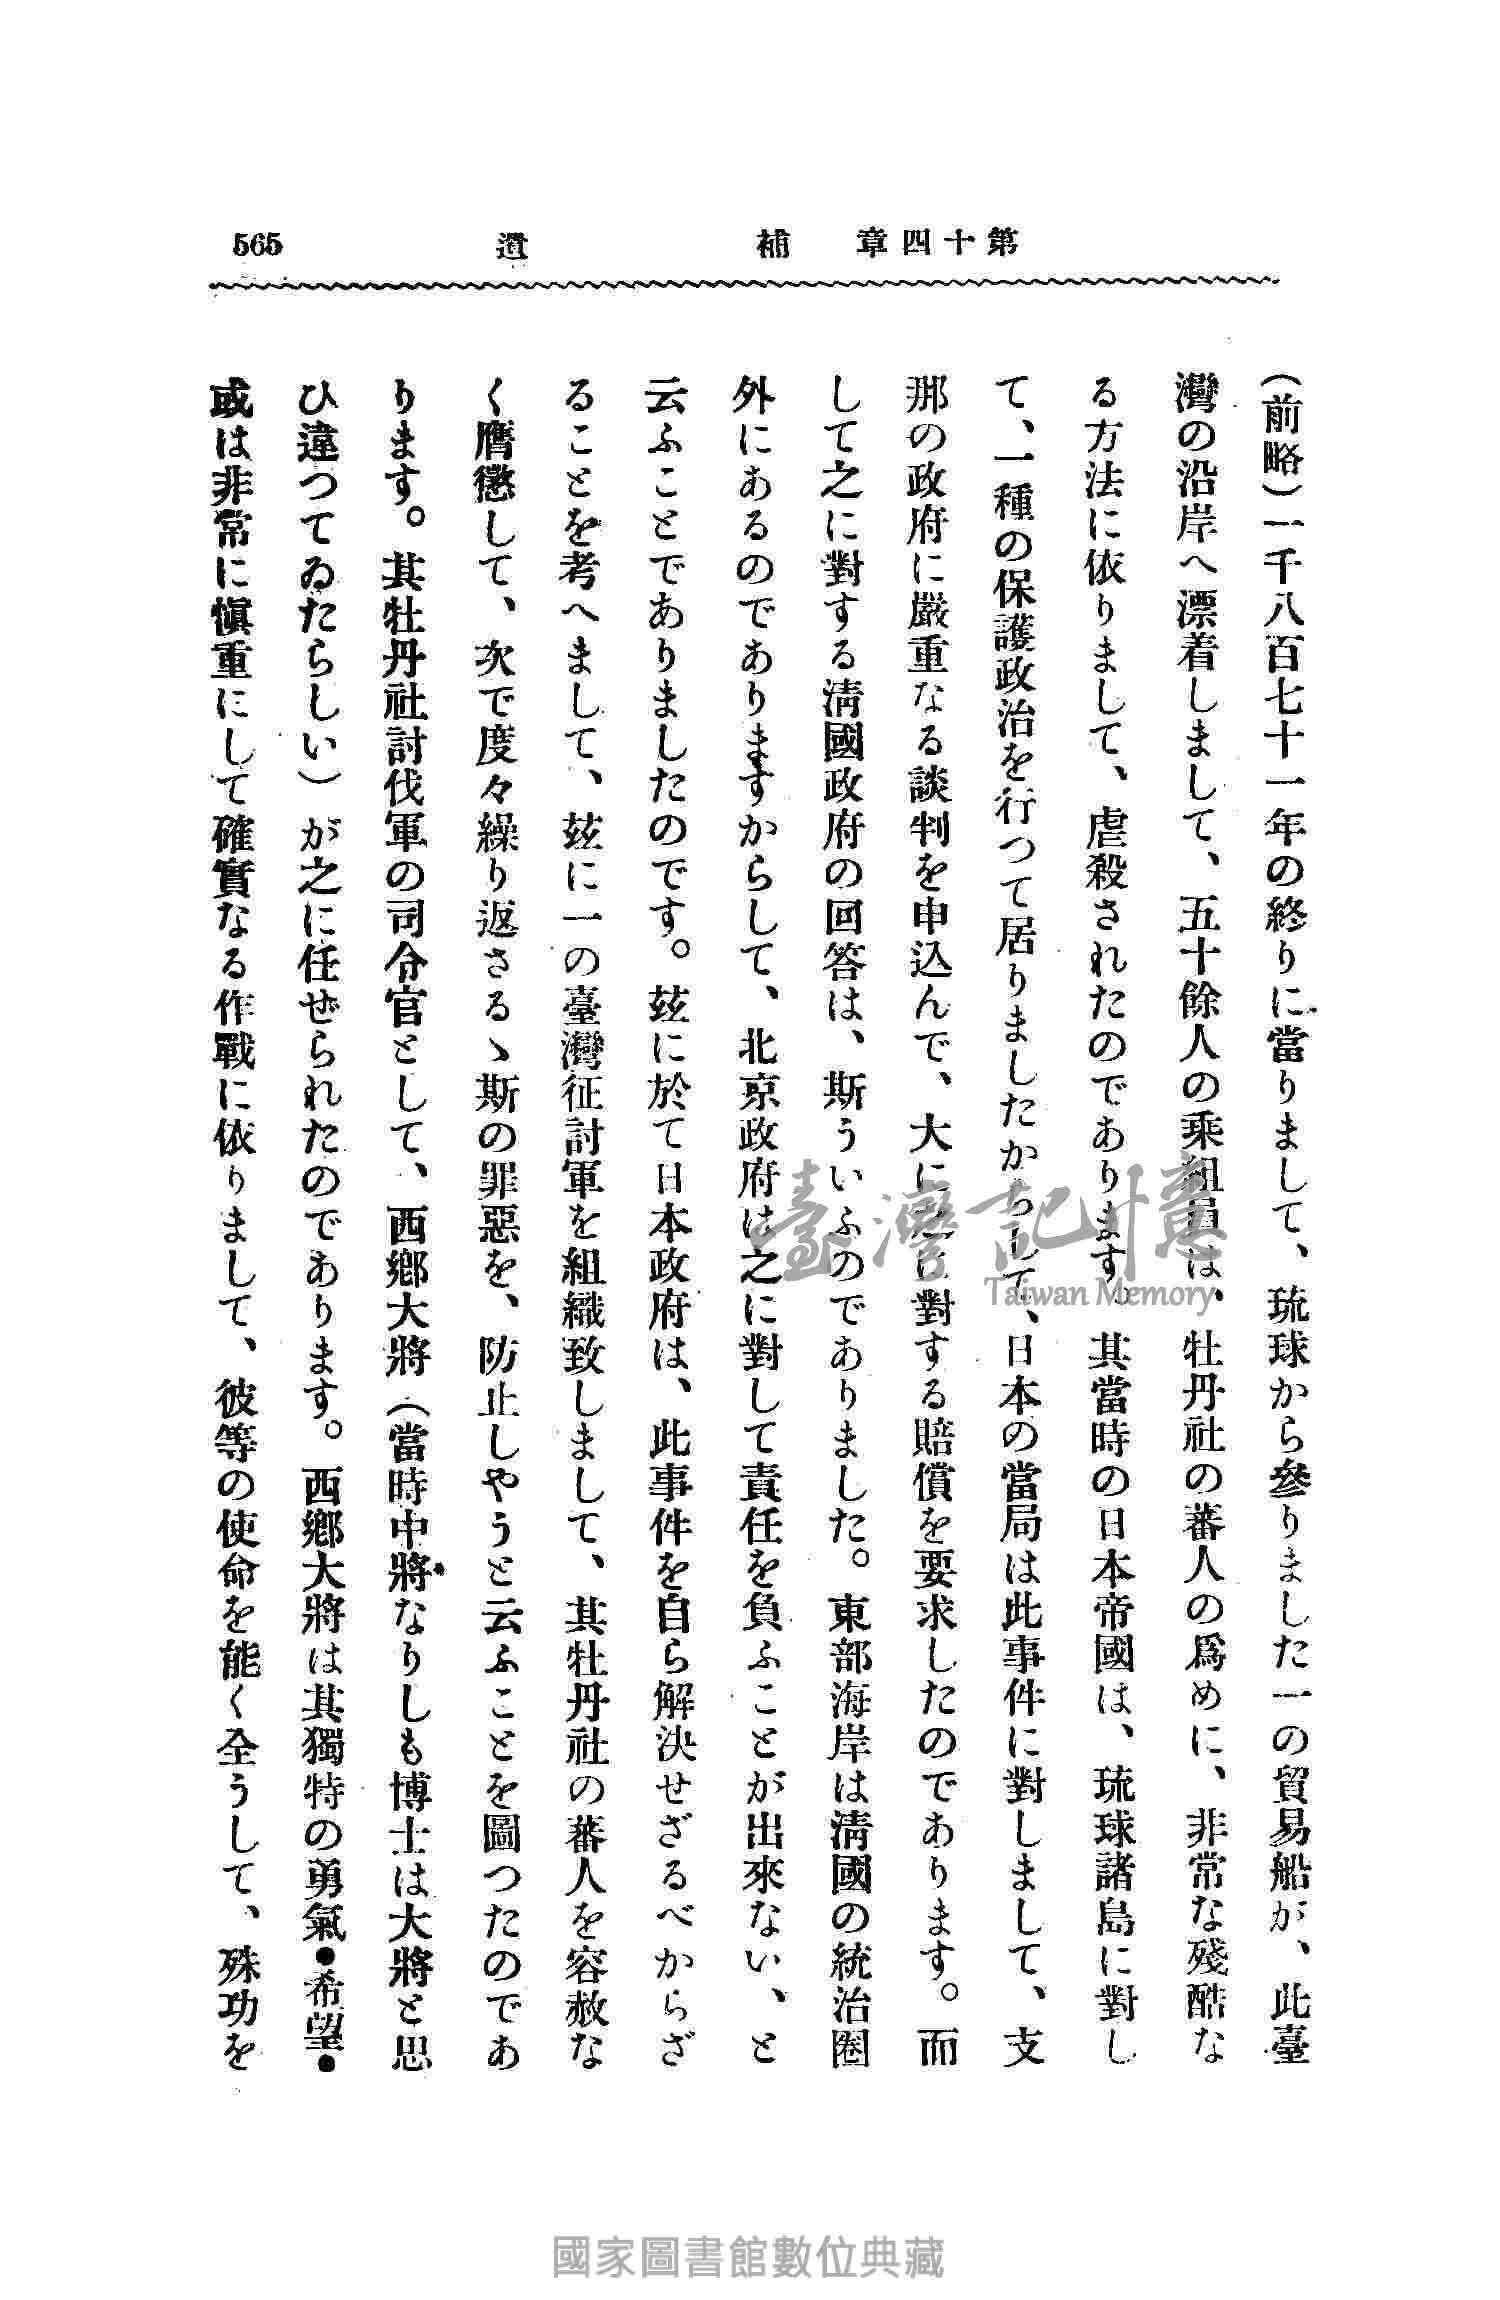 第十四章 補遺 565
（前略）一千八百七十一年の終りに當りまして、琉球から參りました一の貿易船が、此臺
灣の沿岸へ漂着しまして、五十餘人の乘組員は、牡丹社の蕃人の爲めに、非常な殘酷な
る方法に依りまして、虐殺されたのであります。其當時の日本帝國は、琉球諸島に對し
て、一種の保護政治を行つて居りましたからして、日本の當局は此事件に對しまして、支
那の政府に嚴重なる談判を申込んで、大に之に對する賠償を要求したのであります。而
して之に對する淸國政府の回答は、斯ういふのでありました。東部海岸は淸國の統治圈
外にあるのでありますからして、北京政府は之に對して責任を負ふことが出來ない、と
云ふことでありましたのです。玆に於て日本政府は、此事件を自ら解決せざるべからざ
ることを考へまして、玆に一の臺灣征討軍を組織致しまして、其牡丹社の蕃人を容赦な
く膺懲して、次で度々繰り返さるゝ斯の罪惡を、防止しやうと云ふことを圖つたのであ
ります。其牡丹社討伐軍の司令官として、西鄕大將（當時中將なりしも博士は大將と思
ひ違つてゐたらしい）が之に任ぜられたのであります。西鄕大將は其獨特の勇氣●希望●
或は非常に愼重にして確實なる作戰に依りまして、彼等の使命を能く全うして、殊功を
臺灣記憶
Taiwan Memory
國家圖書館數位典藏